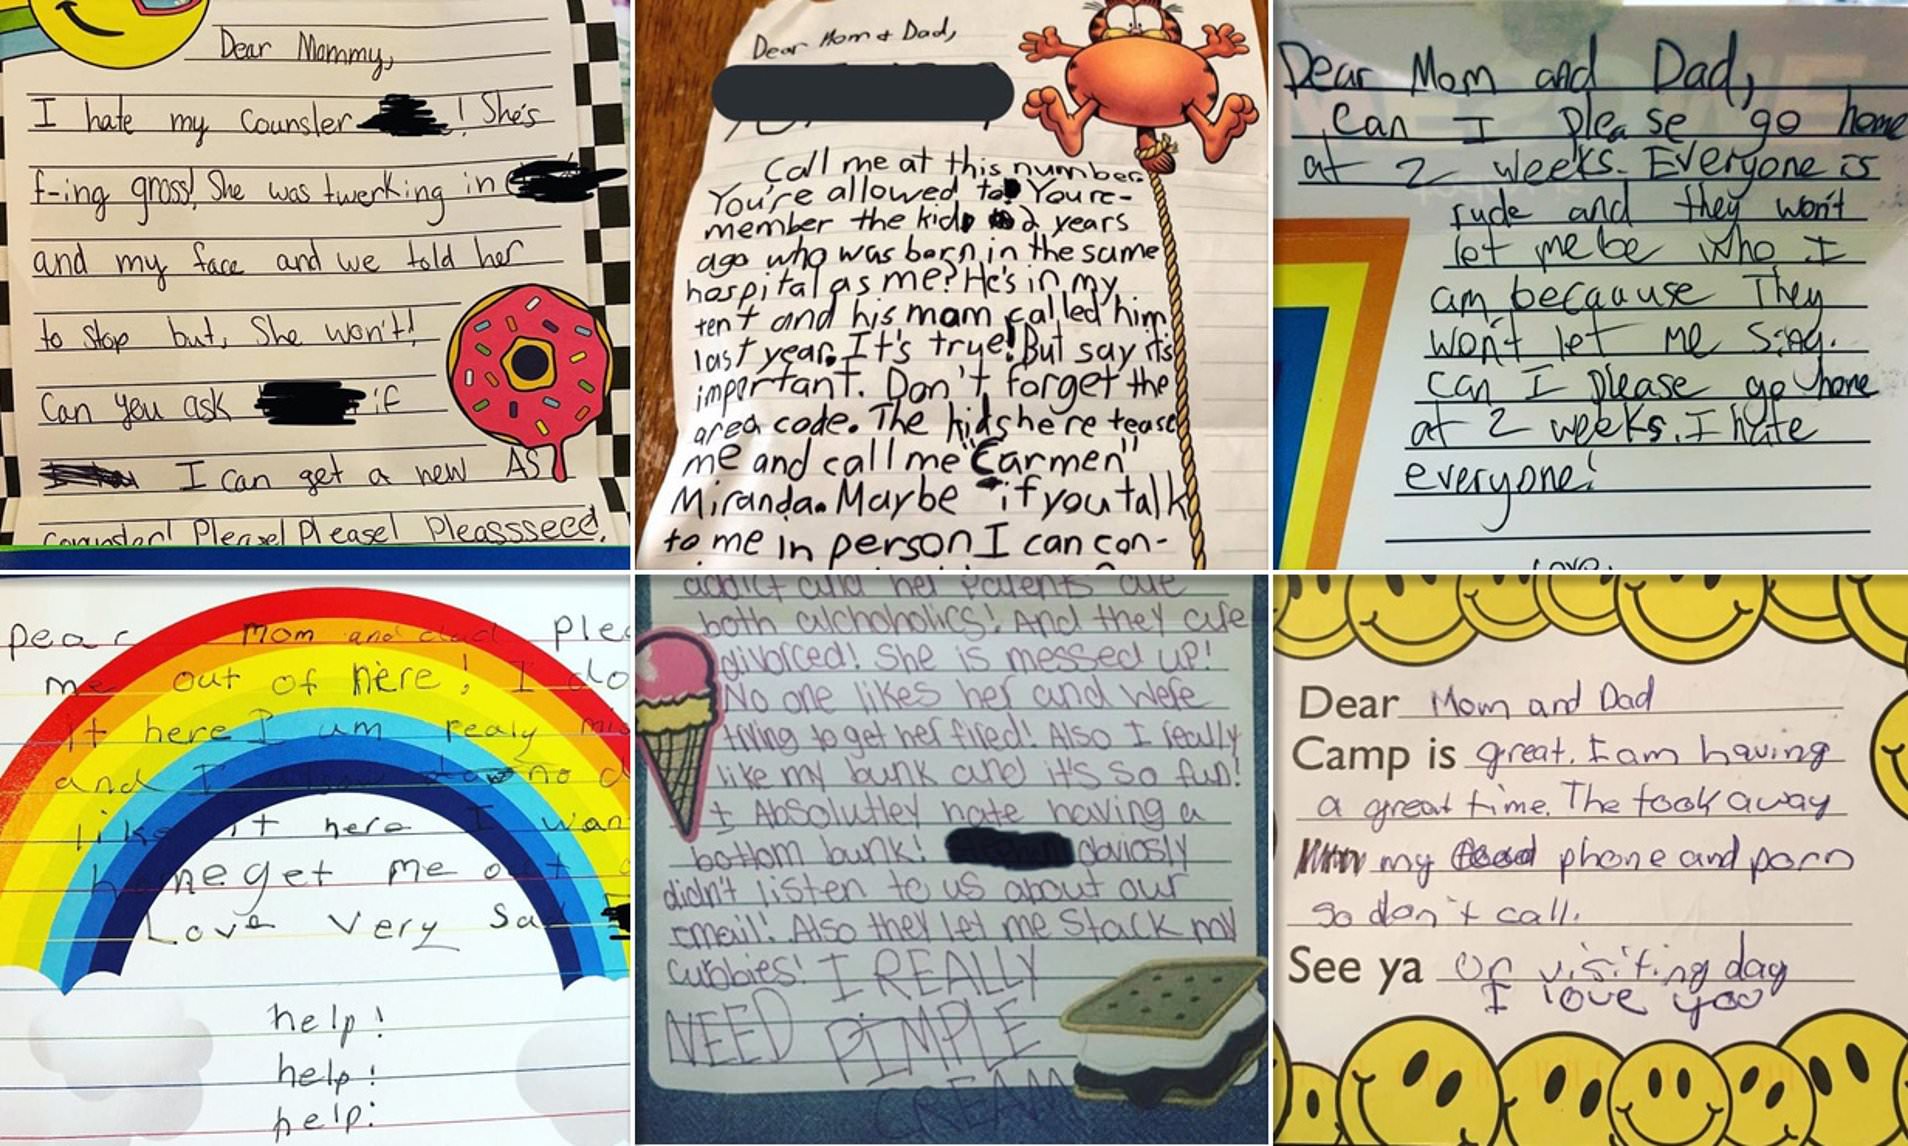 Dear Mommy,
I hate my Counsler ! She's
f-ing gross! She was twerking in
and my face and we told her
to stop but, She won't!
Can you ask if
I can get a new AS
Pleasel Pleasel Pleasssece,
Dear Mom & Dad,
Call me at this number.
You're allowed to. You re-
member the kid 2 years
ago who was born in the same
hospital as me? He's in my
tent and his mom called him
last year. It's true! But say it's
important. Don't forget the
area code. The kids here tease
me and call me "Carmen"
Miranda. Maybe if you talk
to me in person I can con-
Dear Mom and Dad,
Can I please go home
at 2 weeks. Everyone is
rude and they won't
let me be who I
am becauuse They
won't let me sing.
can I please go home
at 2 weeks. I hate
everyone!
Love,
Dear Mom and dad ple
me out of here! I do
it here I um realy mis
and I no d
like it here I wan
home get me out
Love Very Sad
help!
help!
help!
addict and her parents are
both alchoholics! And they are
divorced! She is messed up!
No one likes her and we're
trying to get her fired! Also I really
like my bunk and it's so fun!
I Absolutley hate having a
bottom bunk! obviosly
didn't listen to us about our
email! Also they let me Stack my
cubbies! I REALLY
NEED PIMPLE
CREAM
Dear Mom and Dad
Camp is great. I am having
a great time. The took away
my phone and porn
so don't call.
See ya on visiting day
I love you